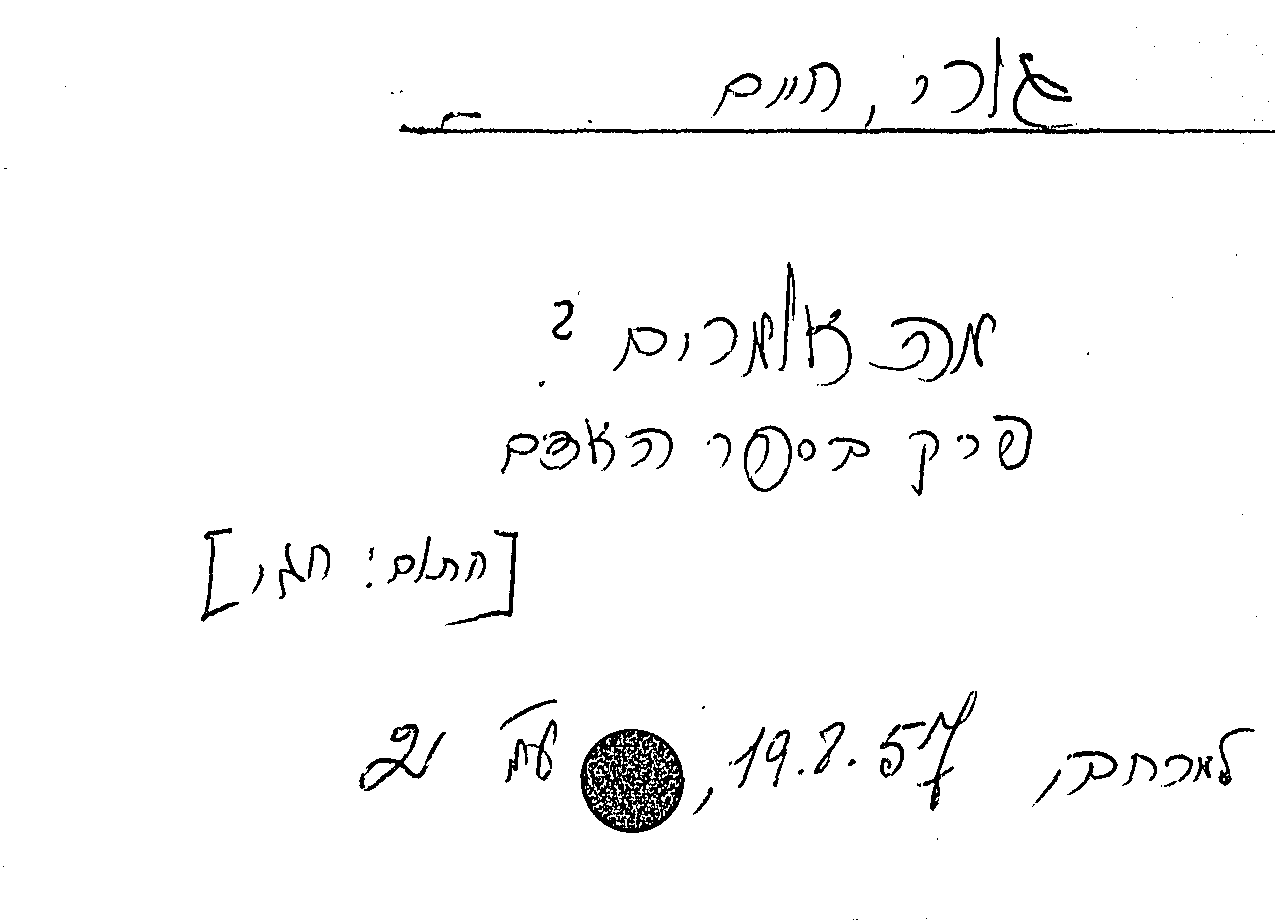 גורי, חיים
מה אומרים?
פרק בספר האדם
[החום: חגי]
למרחב, 19.8.57, עמ' 2